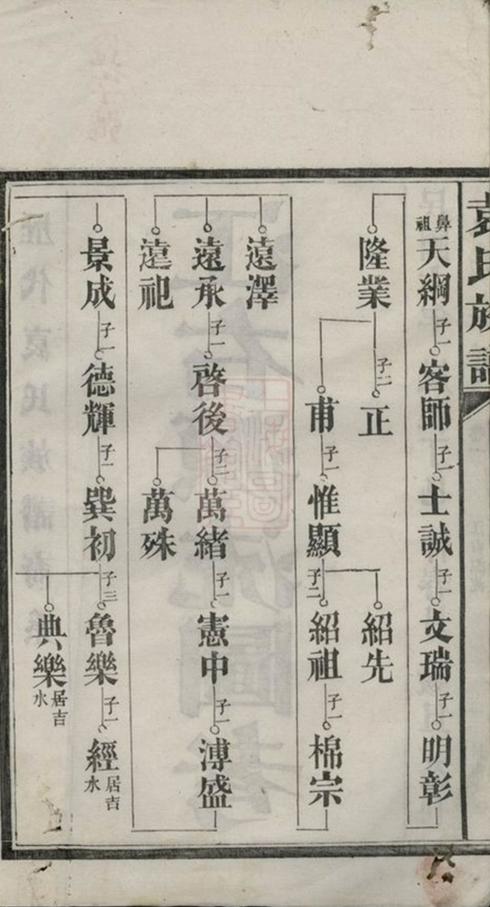 袁氏族譜
鼻祖 天綱 子一 客師 子一 士誠 子一 文瑞 子一 明彰
隆業 子二 正
甫 子一 惟顯 子二 紹先
紹祖 子一 棉宗
遠澤
遠承 子一 啓後 子二 萬緒 子一 憲中 子一 溥盛
遠祀
萬殊
景成 子一 德輝 子一 巽初 子三 魯樂 子一 經 居吉水
典樂 居吉水